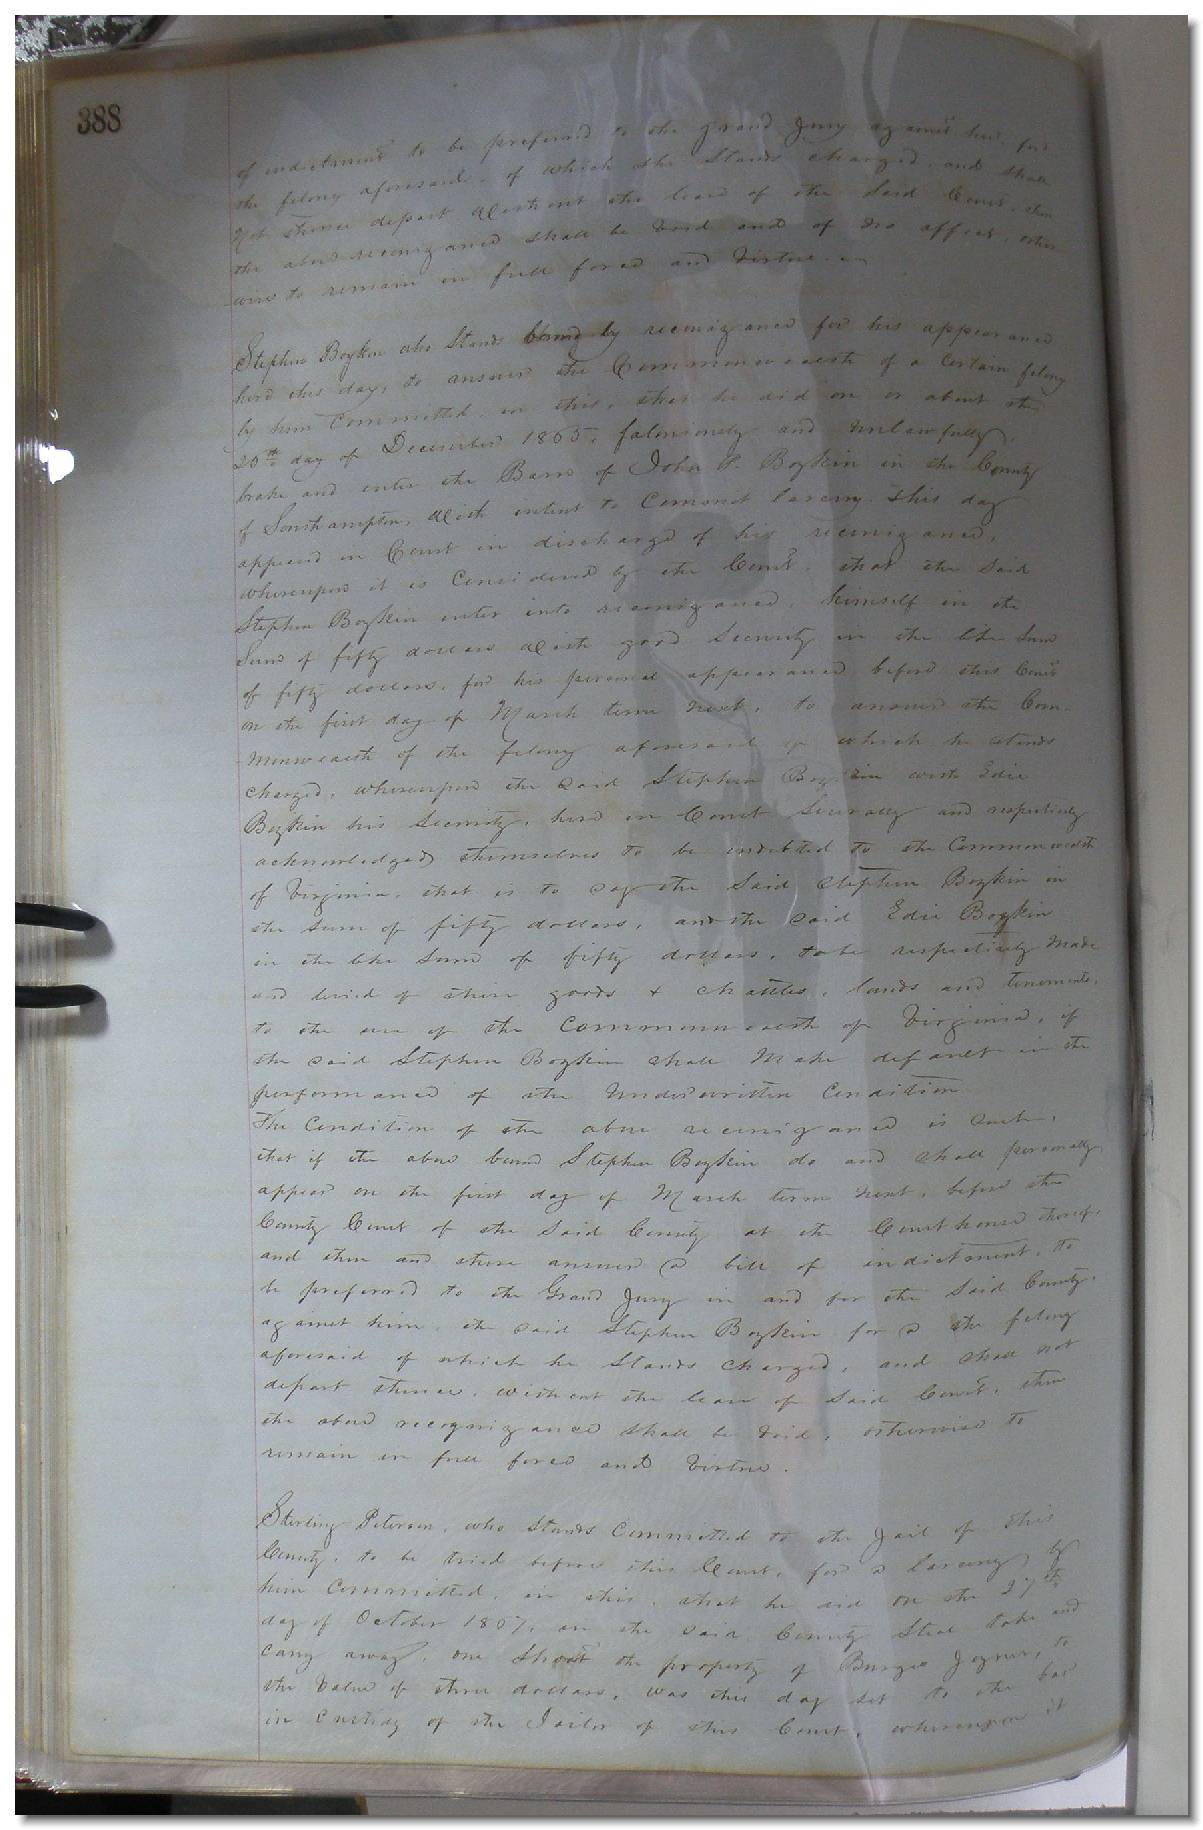 388
of indictment to be preferred to the grand Jury against her, for
the felony aforesaid, of which she stands charged, and shall
not thence depart without the leave of the said Court, then
the above recognizance shall be void and of no effect, other
wise to remain in full force and virtue.
Stephen Boykin who stands bound by recognizance for his appearance
here this day, to answer the Commonwealth of a certain felony
by him Committed, in this, that he did on or about the
20th day of December 1865, feloniously and unlawfully,
brake and enter the Barn of John P. Boykin in the County
of Southampton, with intent to Commet larceny. This day
appeared in Court in discharge of his recognizance,
whereupon it is Considered by the Court, that the said
Stephen Boykin enter into recognizance, himself in the
sum of fifty dollars with good security in the like sum
of fifty dollars, for his personal appearance before this Court
on the first day of March term next, to answer the Com-
monwealth of the felony aforesaid of which he stands
charged, whereupon the said Stephen Boykin with Edie
Boykin his security, here in Court severally and respectively
acknowledged themselves to be indebted to the Commonwealth
of Virginia, that is to say the said Stephen Boykin in
the sum of fifty dollars, and the said Edie Boykin
in the like sum of fifty dollars, to be respectively made
and levied of their goods & chattles, lands and tenements,
to the use of the Commonwealth of Virginia, if
the said Stephen Boykin shall make default in the
performance of the underwritten Condition
The Condition of the above recognizance is such,
that if the above bound Stephen Boykin do and shall personally
appear on the first day of March term next, before the
County Court of the said County at the Courthouse thereof,
and then and there answer a bill of indictment, to
be preferred to the Grand Jury in and for the said County,
against him, the said Stephen Boykin for a the felony
aforesaid of which he stands charged, and shall not
depart thence, without the leave of said Court, then
the above recognizance shall be void, otherwise to
remain in full force and virtue.
Sterling Peterson, who stands Committed to the Jail of this
County, to be tried before this Court, for a larceny, by
him Committed, in this, that he did on the 27th
day of October 1867, in the said County steal take and
carry away, one Shoat the property of Burges Joyner, to
the value of three dollars, was this day set to the bar
in custody of the Jailor of this Court, whereupon it